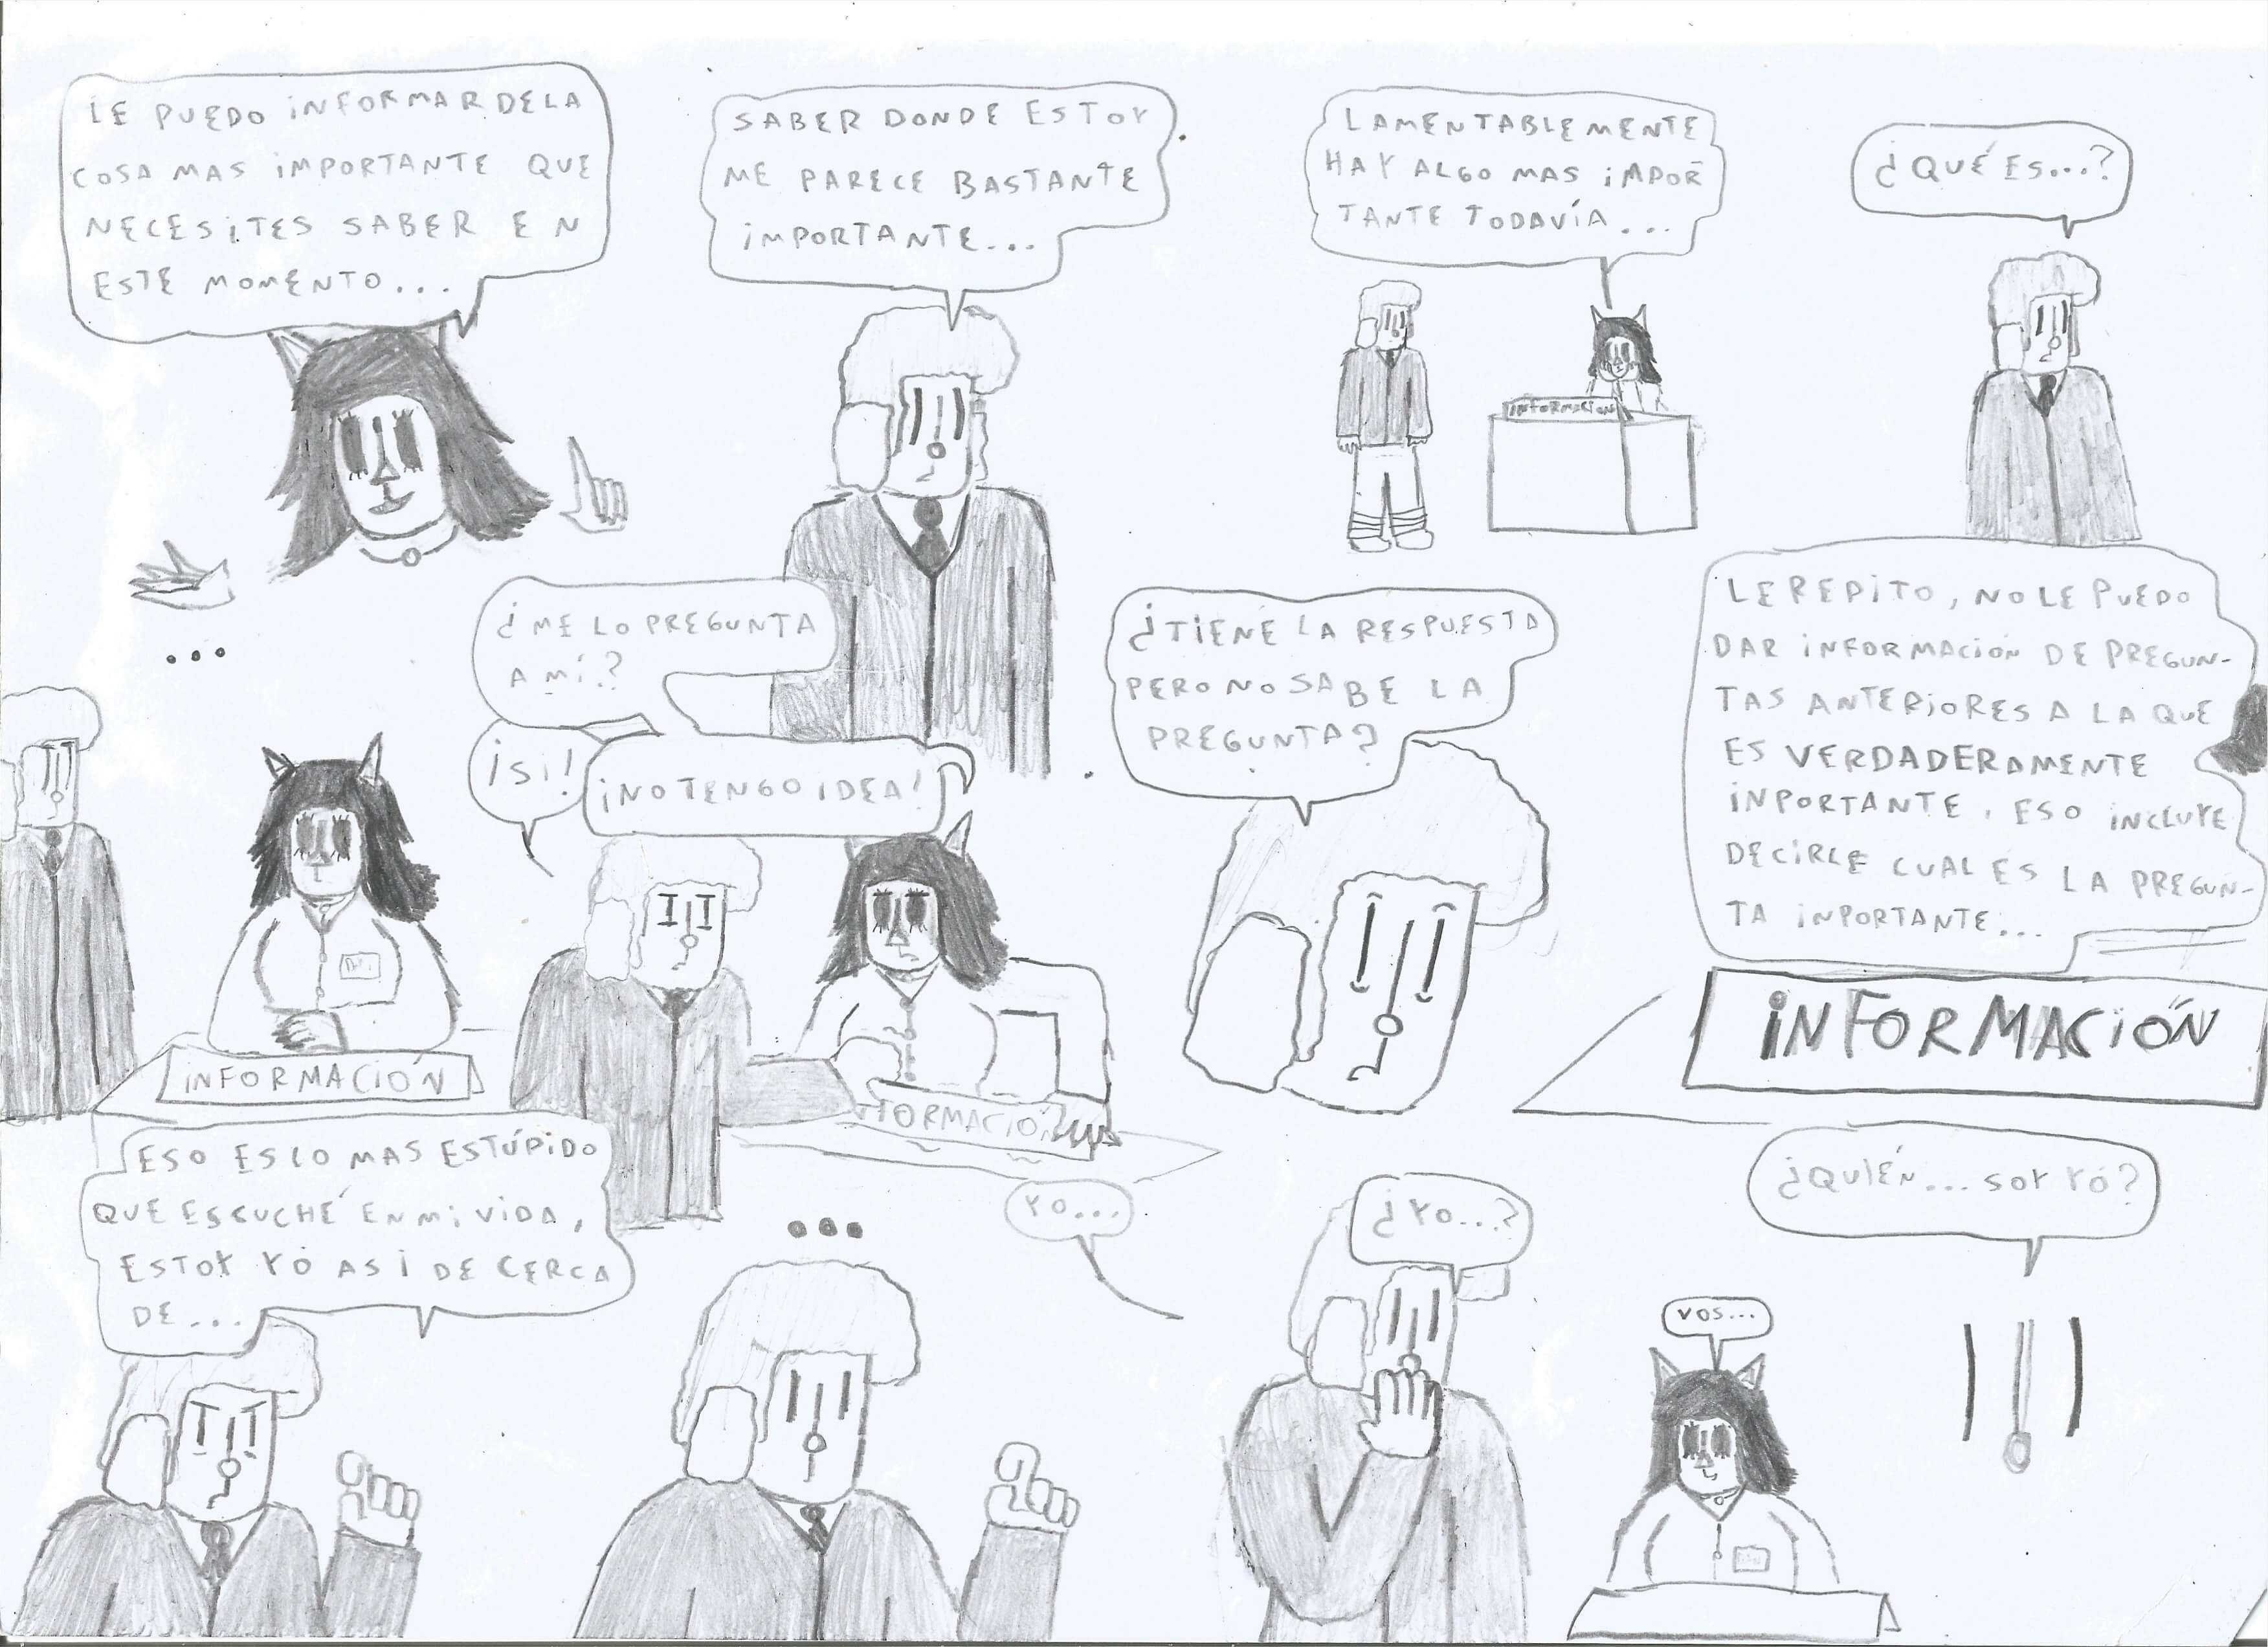 LE PUEDO INFORMAR DE LA
COSA MAS IMPORTANTE QUE
NECESITES SABER EN
ESTE MOMENTO...
SABER DONDE ESTOY
ME PARECE BASTANTE
IMPORTANTE...
LAMENTABLEMENTE
HAY ALGO MAS IMPOR
TANTE TODAVÍA...
INFORMACION
¿QUÉ ES...?
...
INFORMACIÓN
¿ME LO PREGUNTA
A MÍ?
¡SI!
¡NO TENGO IDEA!
FORMACIÓN
¿TIENE LA RESPUESTA
PERO NO SABE LA
PREGUNTA?
LE REPITO, NO LE PUEDO
DAR INFORMACIÓN DE PREGUN-
TAS ANTERIORES A LA QUE
ES VERDADERAMENTE
INPORTANTE, ESO INCLUYE
DECIRLE CUAL ES LA PREGUN-
TA INPORTANTE...
INFORMACIÓN
ESO ES LO MAS ESTÚPIDO
QUE ESCUCHÉ EN MI VIDA,
ESTOY YO ASI DE CERCA
DE...
...
YO...
¿YO...?
VOS...
¿QUIÉN... SOY YO?